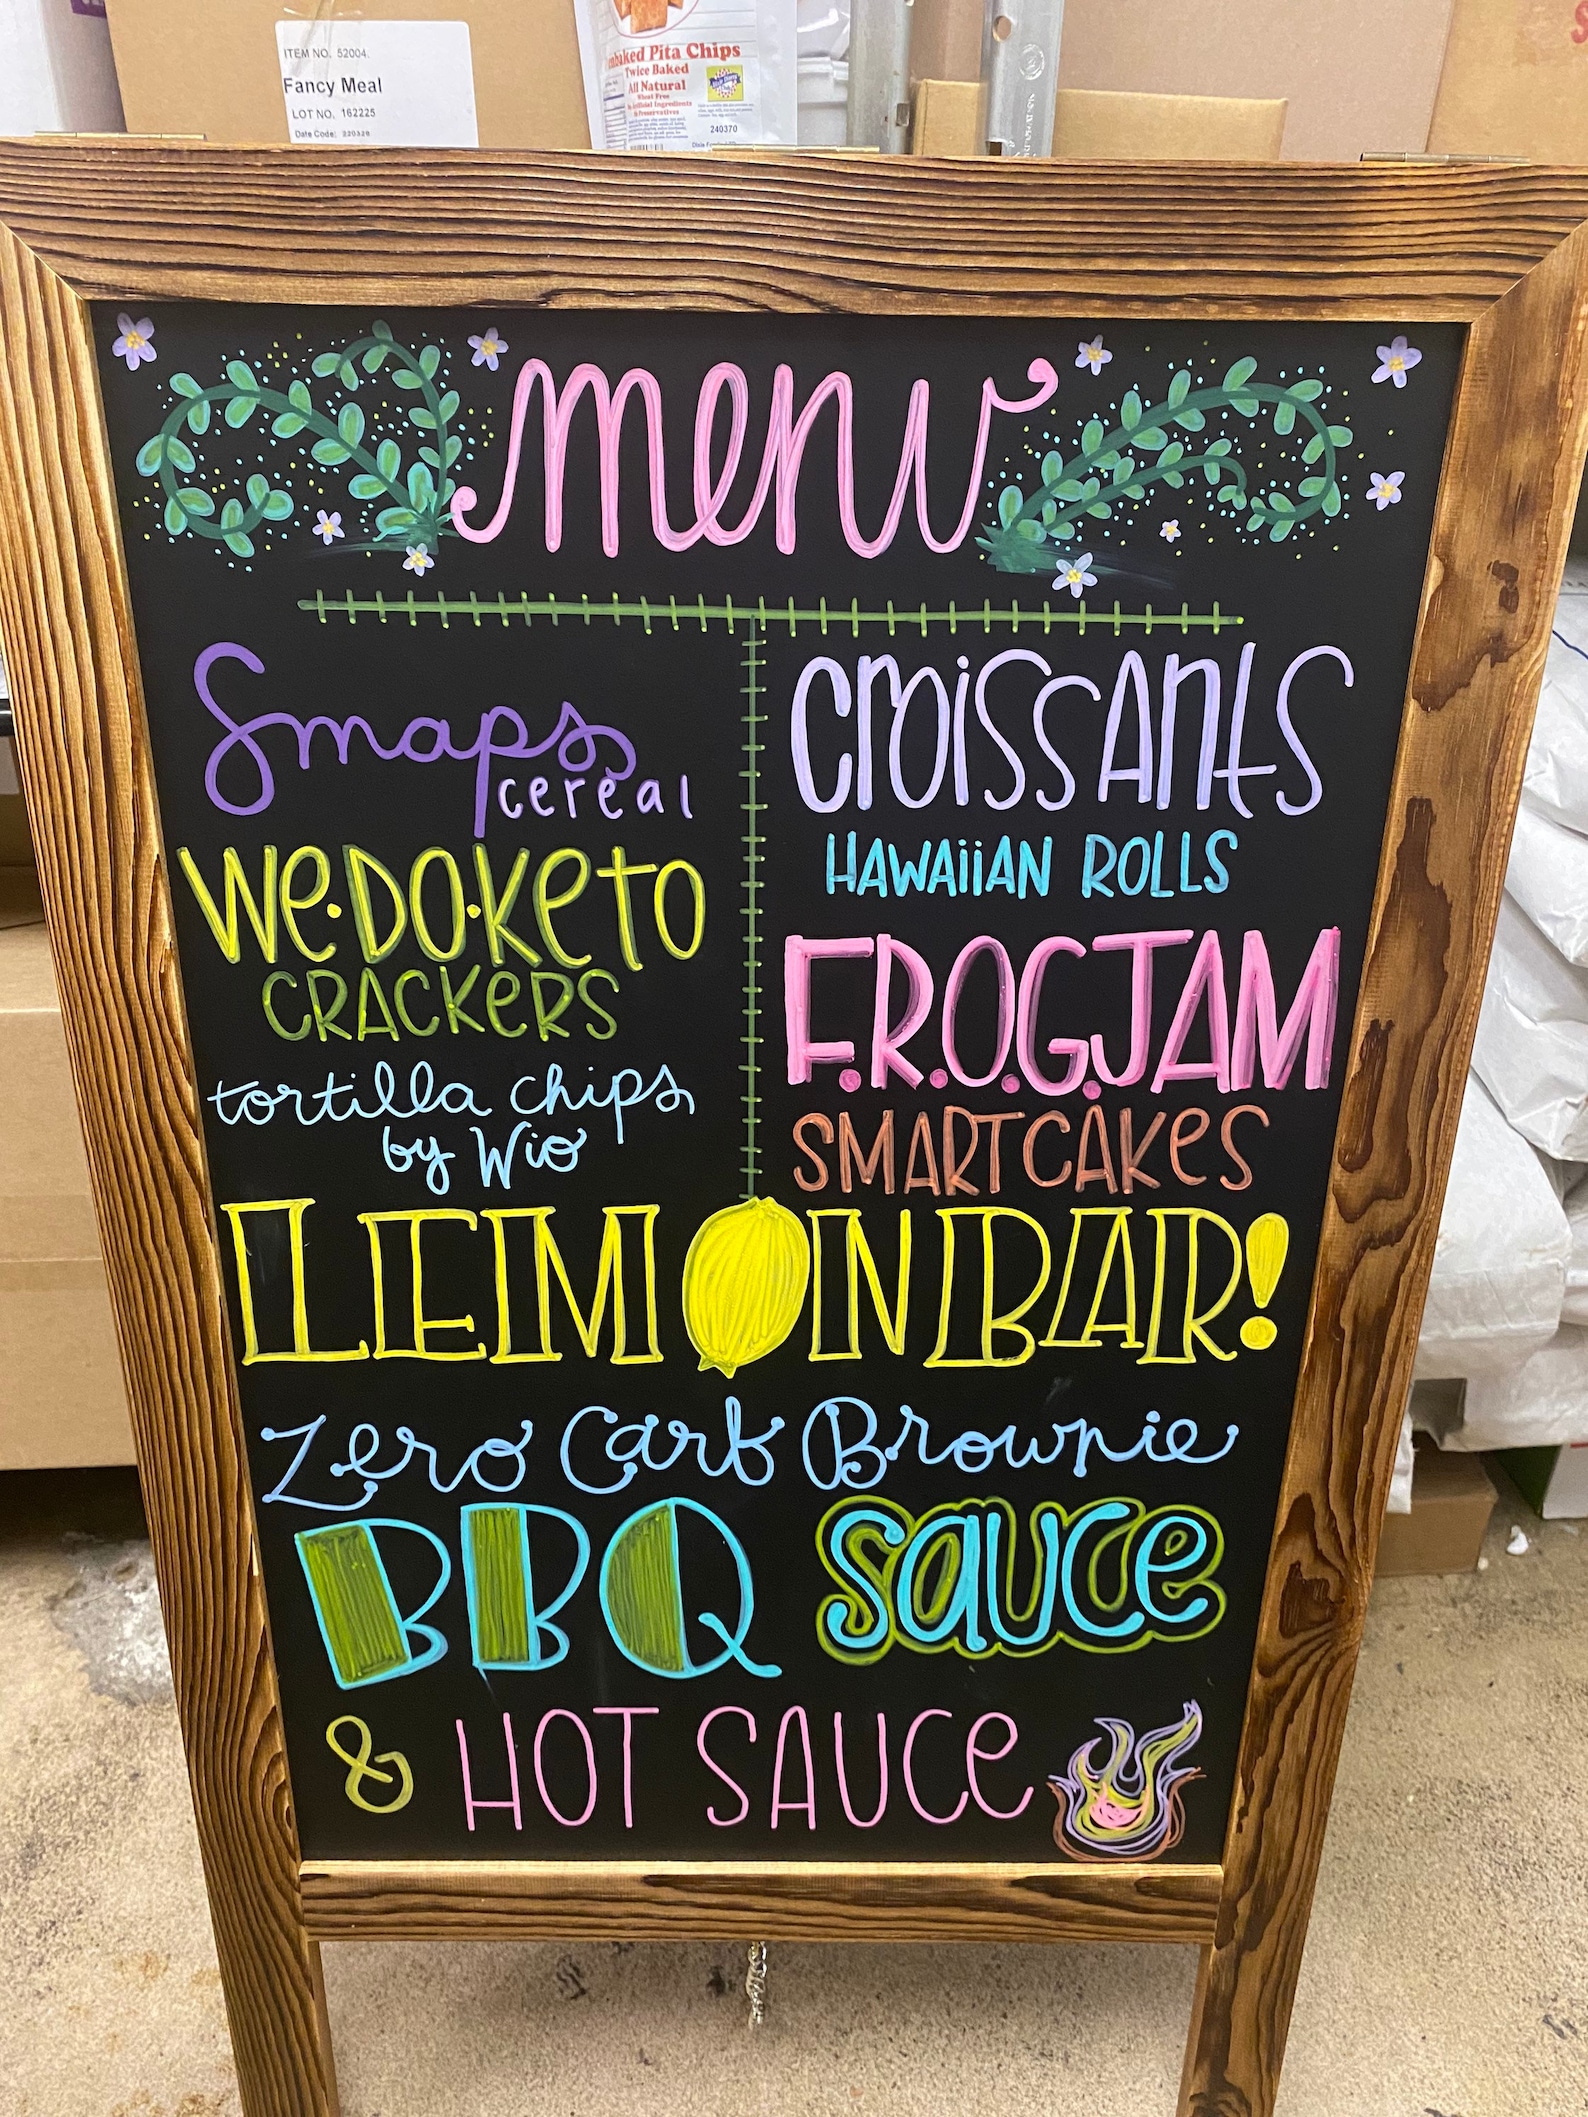 ITEM NO. 52004
Fancy Meal
LOT NO. 162225
Date Code: 220328
baked Pita Chips
Twice Baked
All Natural
Wheat Free
240370
menu
Smaps
cereal
We·Do·Keto
CRACKERS
tortilla chips
by Wio
CROISSANTS
HAWAIIAN ROLLS
F.R.O.G. JAM
SMARTCAKES
LEMON BAR!
Zero Carb Brownie
BBQ sauce
& HOT SAUCE